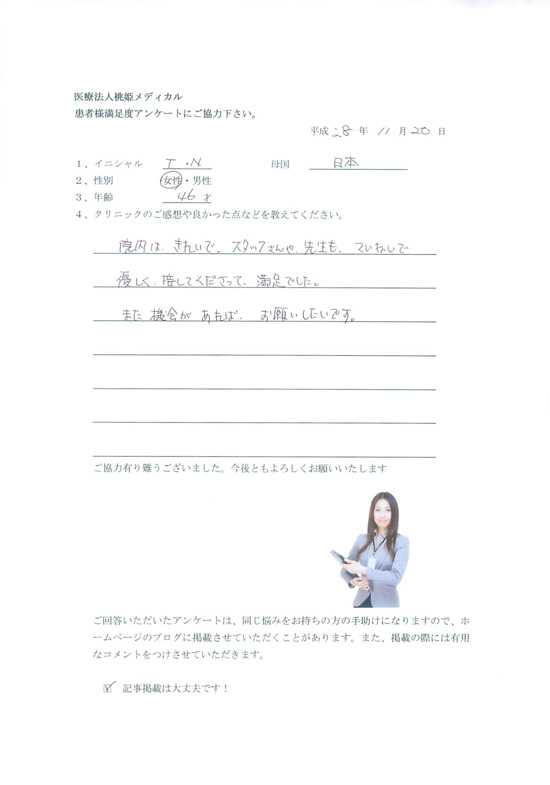 医療法人桃姫メディカル
患者様満足度アンケートにご協力下さい。
平成 28 年 11 月 20 日
1、イニシャル T・N 母国 日本
2、性別 女性・男性
3、年齢 46才
4、クリニックのご感想や良かった点などを教えてください。
院内は、きれいで、スタッフさんや、先生も、ていねいで
優しく、接してくださって、満足でした。
また 機会が あれば、お願いしたいです。
ご協力有り難うございました。今後ともよろしくお願いいたします
ご回答いただいたアンケートは、同じ悩みをお持ちの方の手助けになりますので、ホ
ームページのブログに掲載させていただくことがあります。また、掲載の際には有用
なコメントをつけさせていただきます。
☑ 記事掲載は大丈夫です！